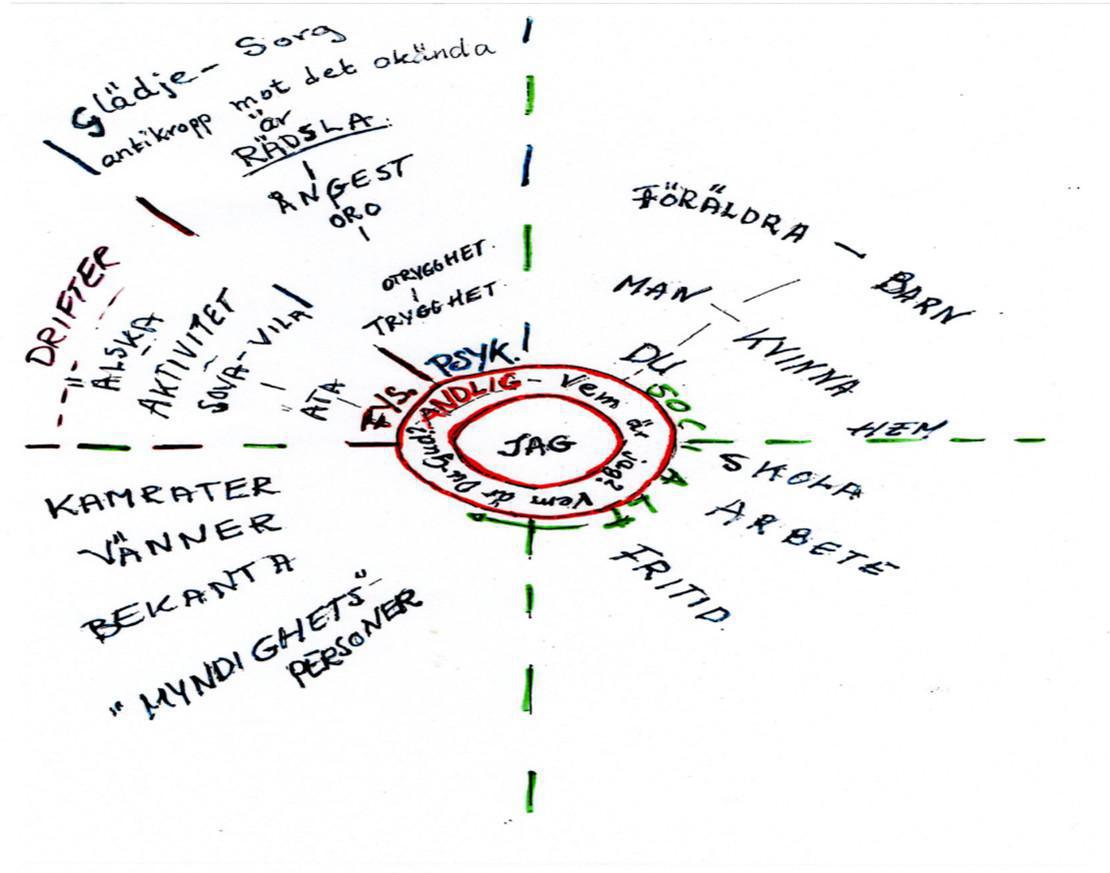 Glädje - Sorg
antikropp mot det okända
är
RÄDSLA.
ÅNGEST
ORO
OTRYGGHET.
TRYGGHET.
PSYK.
DRIFTER
ÄLSKA
AKTIVITET
SOVA - VILA
ÄTA
FYS.
ANDLIG - Vem är jag? Vem är Du gud?
JAG
SOCIALT
DU
MAN - KVINNA
FÖRÄLDRA - BARN
HEM
SKOLA
ARBETE
FRITID.
KAMRATER
VÄNNER
BEKANTA
"MYNDIGHETS"-
PERSONER